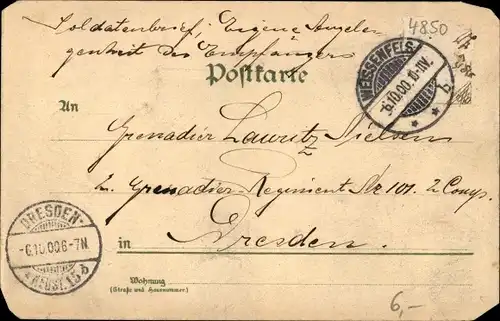 Soldatenbrief, Eigene Angele-
genheit des Empfängers
4850
Postkarte
WEISSENFELS
6.10.00.10-11V.
An
Grenadier Lauritz Nielsen
2. Grenadier-Regiment Nr 101. 2 Comp.
DRESDEN-
-6.10.00 6-7N
NEUST. 15 b
in Dresden.
Wohnung
(Straße und Hausnummer)
6,-